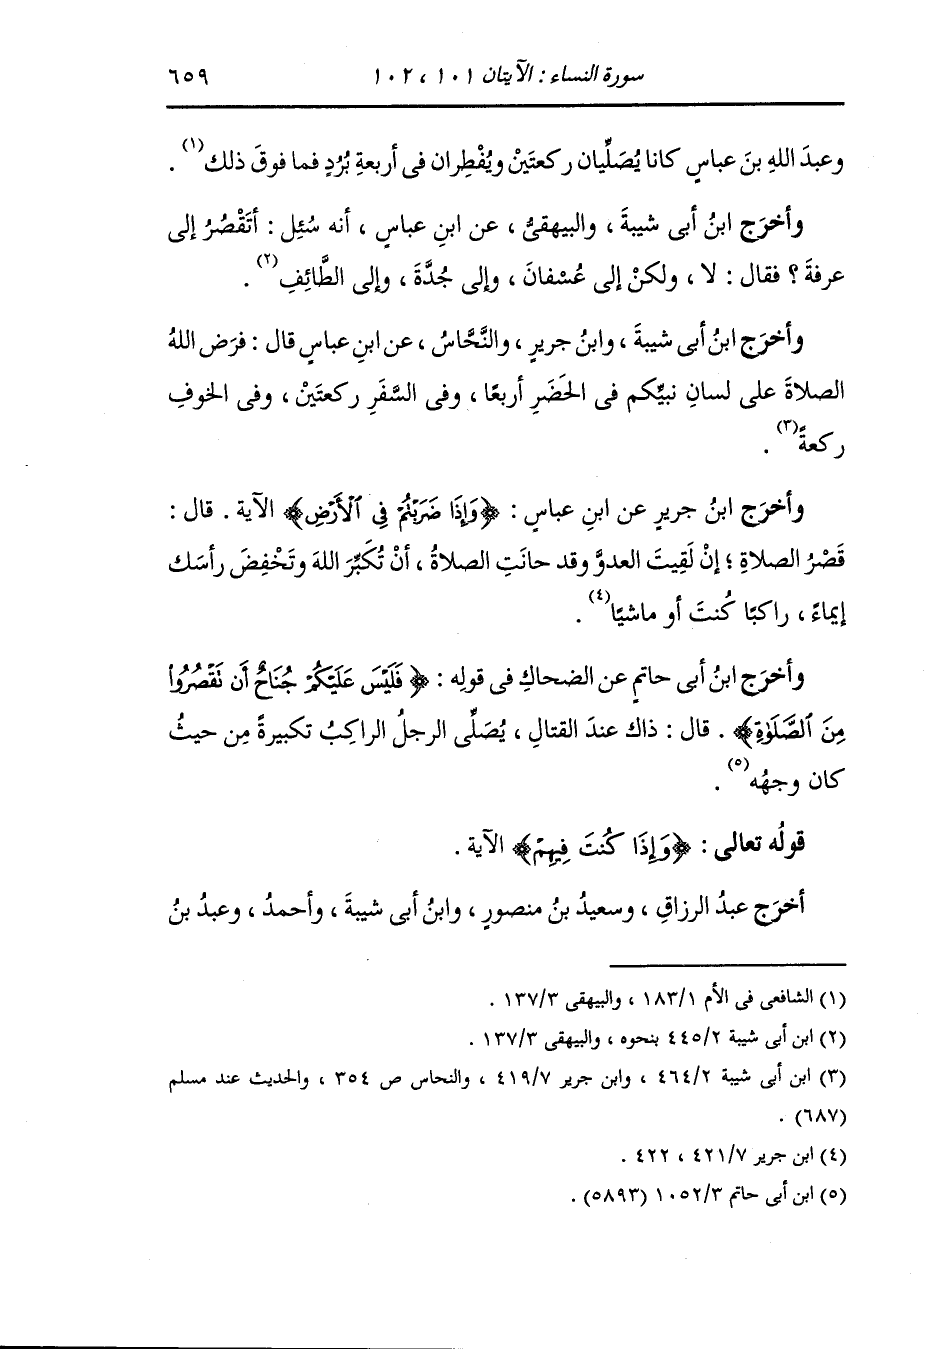 سورة النساء : الآيتان ١٠١ ، ١٠٢ ٦٥٩
وعبدَ اللهِ بنَ عباسٍ كانا يُصَلِّيان ركعتَيْنْ ويُفْطِران فى أربعةِ بُرُدٍ فما فوقَ ذلك(١) .
وأخرَج ابنُ أبى شيبةَ ، والبيهقىُّ ، عن ابنِ عباسٍ ، أنه سُئِل : أتَقْصُرُ إلى
عرفةَ ؟ فقال : لا ، ولكنْ إلى عُسْفانَ ، وإلى جُدَّةَ ، وإلى الطَّائِفِ(٢) .
وأخرَج ابنُ أبى شيبةَ ، وابنُ جريرٍ ، والنَّحَّاسُ ، عن ابنِ عباسٍ قال : فرَض اللهُ
الصلاةَ على لسانِ نبيِّكم فى الحَضَرِ أربعًا ، وفى السَّفَرِ ركعتَيْنْ ، وفى الخوفِ
ركعةً(٣) .
وأخرَج ابنُ جريرٍ عن ابنِ عباسٍ : ﴿وَإِذَا ضَرَبْتُمْ فِي ٱلْأَرْضِ﴾ الآية . قال :
قَصْرُ الصلاةِ ؛ إنْ لَقِيتَ العدوَّ وقد حانَتِ الصلاةُ ، أنْ تُكَبِّرَ اللهَ وتَخْفِضَ رأسَك
إيماءً ، راكبًا كُنتَ أو ماشيًا(٤) .
وأخرَج ابنُ أبى حاتمٍ عن الضحاكِ فى قولِه : ﴿ فَلَيْسَ عَلَيْكُمْ جُنَاحٌ أَن نَقْصُرُوا۟
مِنَ ٱلصَّلَوٰةِ﴾ . قال : ذاك عندَ القتالِ ، يُصَلِّى الرجلُ الراكِبُ تكبيرةً مِن حيثُ
كان وجهُه(٥) .
قولُه تعالى : ﴿وَإِذَا كُنتَ فِيهِمْ﴾ الآية .
أخرَج عبدُ الرزاقِ ، وسعيدُ بنُ منصورٍ ، وابنُ أبى شيبةَ ، وأحمدُ ، وعبدُ بنُ
(١) الشافعى فى الأم ١٨٣/١ ، والبيهقى ١٣٧/٣ .
(٢) ابن أبى شيبة ٤٤٥/٢ بنحوه ، والبيهقى ١٣٧/٣ .
(٣) ابن أبى شيبة ٤٦٤/٢ ، وابن جرير ٤١٩/٧ ، والنحاس ص ٣٥٤ ، والحديث عند مسلم
(٦٨٧) .
(٤) ابن جرير ٤٢١/٧ ، ٤٢٢ .
(٥) ابن أبى حاتم ١٠٥٢/٣ (٥٨٩٣) .